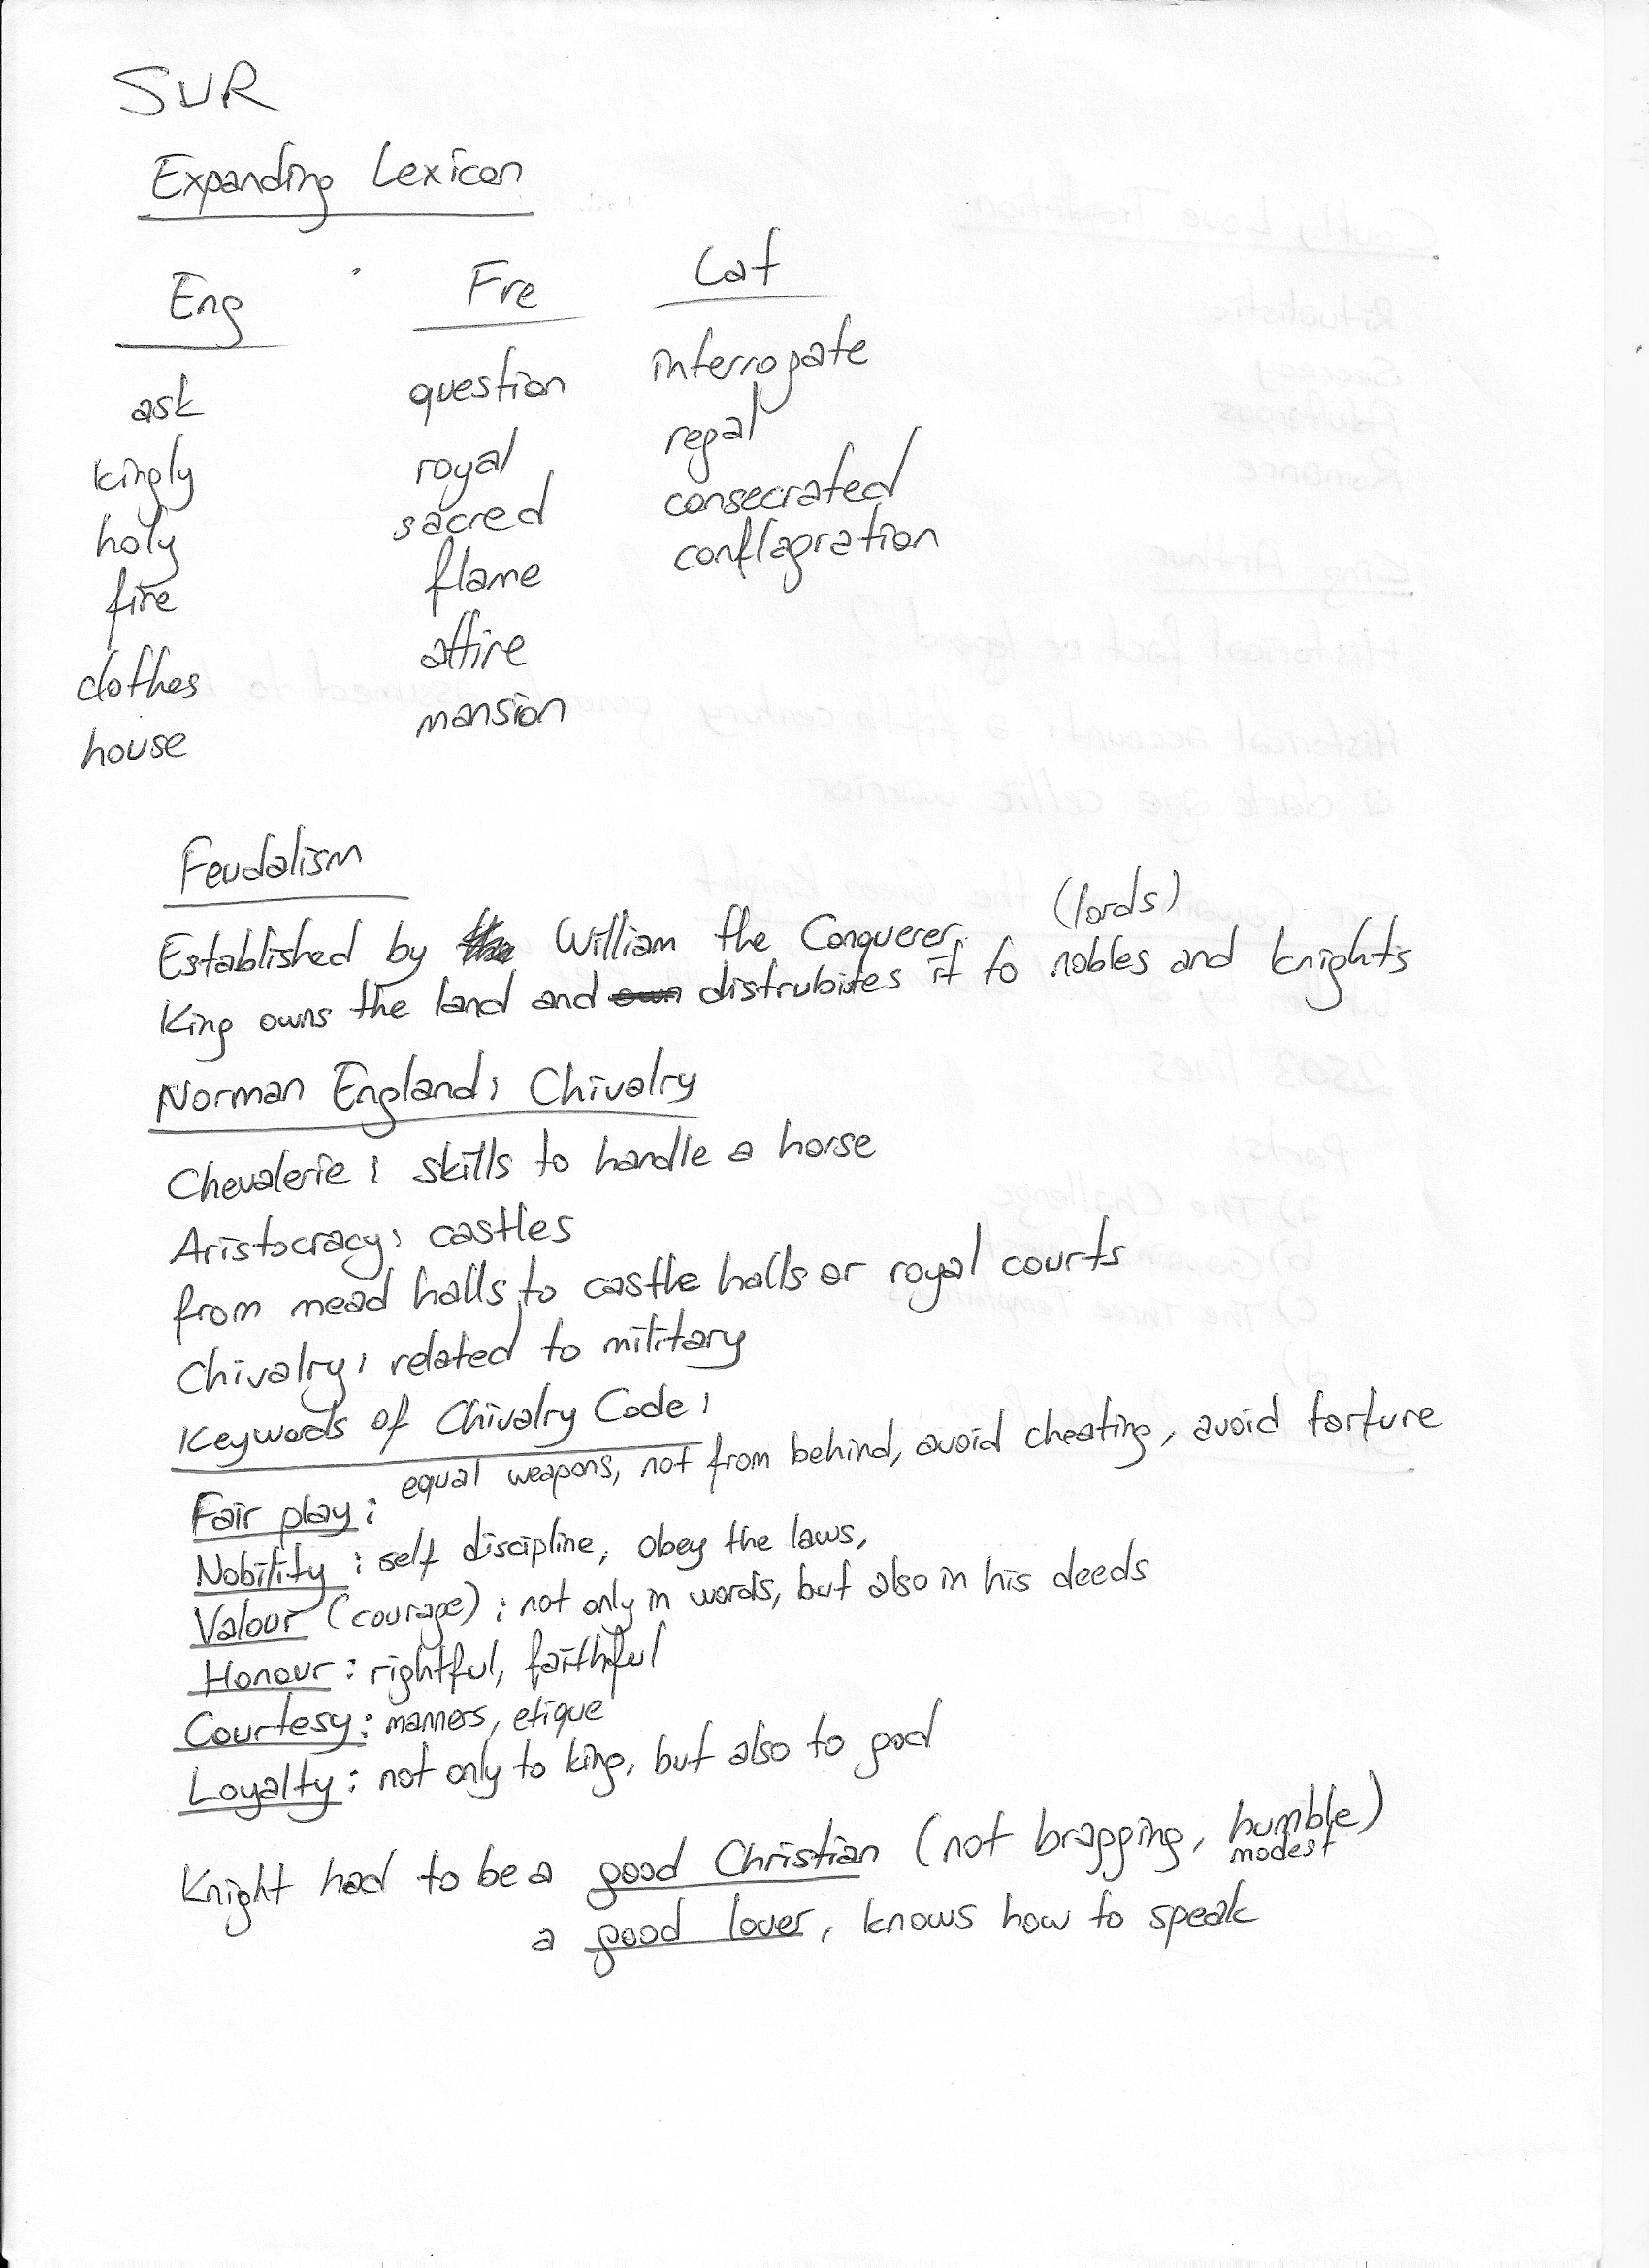 SUR
Expanding Lexicon
Eng Fre Lat
ask question interrogate
kingly royal regal
holy sacred consecrated
fire flame conflagration
clothes attire
house mansion
Feudalism
(lords)
Established by the William the Conquerer.
King owns the land and own distrubites it to nobles and knights
Norman England: Chivalry
Chevalerie: skills to handle a horse
Aristocracy: castles
from mead halls to castle halls or royal courts
Chivalry: related to military
Keywords of Chivalry Code:
Fair play: equal weapons, not from behind, avoid cheating, avoid torture
Nobility: self discipline, obey the laws,
Valour (courage): not only in words, but also in his deeds
Honour: rightful, faithful
Courtesy: manners, etique
Loyalty: not only to king, but also to god
Knight had to be a good Christian (not bragging, humble)
modest
a good lover, knows how to speak